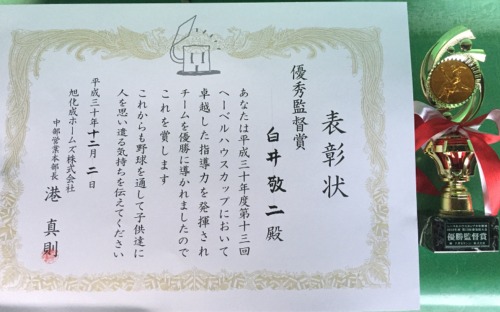 表彰状
優秀監督賞
白井敬二殿
あなたは平成三十年度第十三回
ヘーベルハウスカップにおいて
卓越した指導力を発揮され
チームを優勝に導かれましたので
これを賞します
これからも野球を通して子供達に
人を思い遣る気持ちを伝えてください
平成三十年十二月二日
旭化成ホームズ株式会社
中部営業本部長 港真則
優勝監督賞